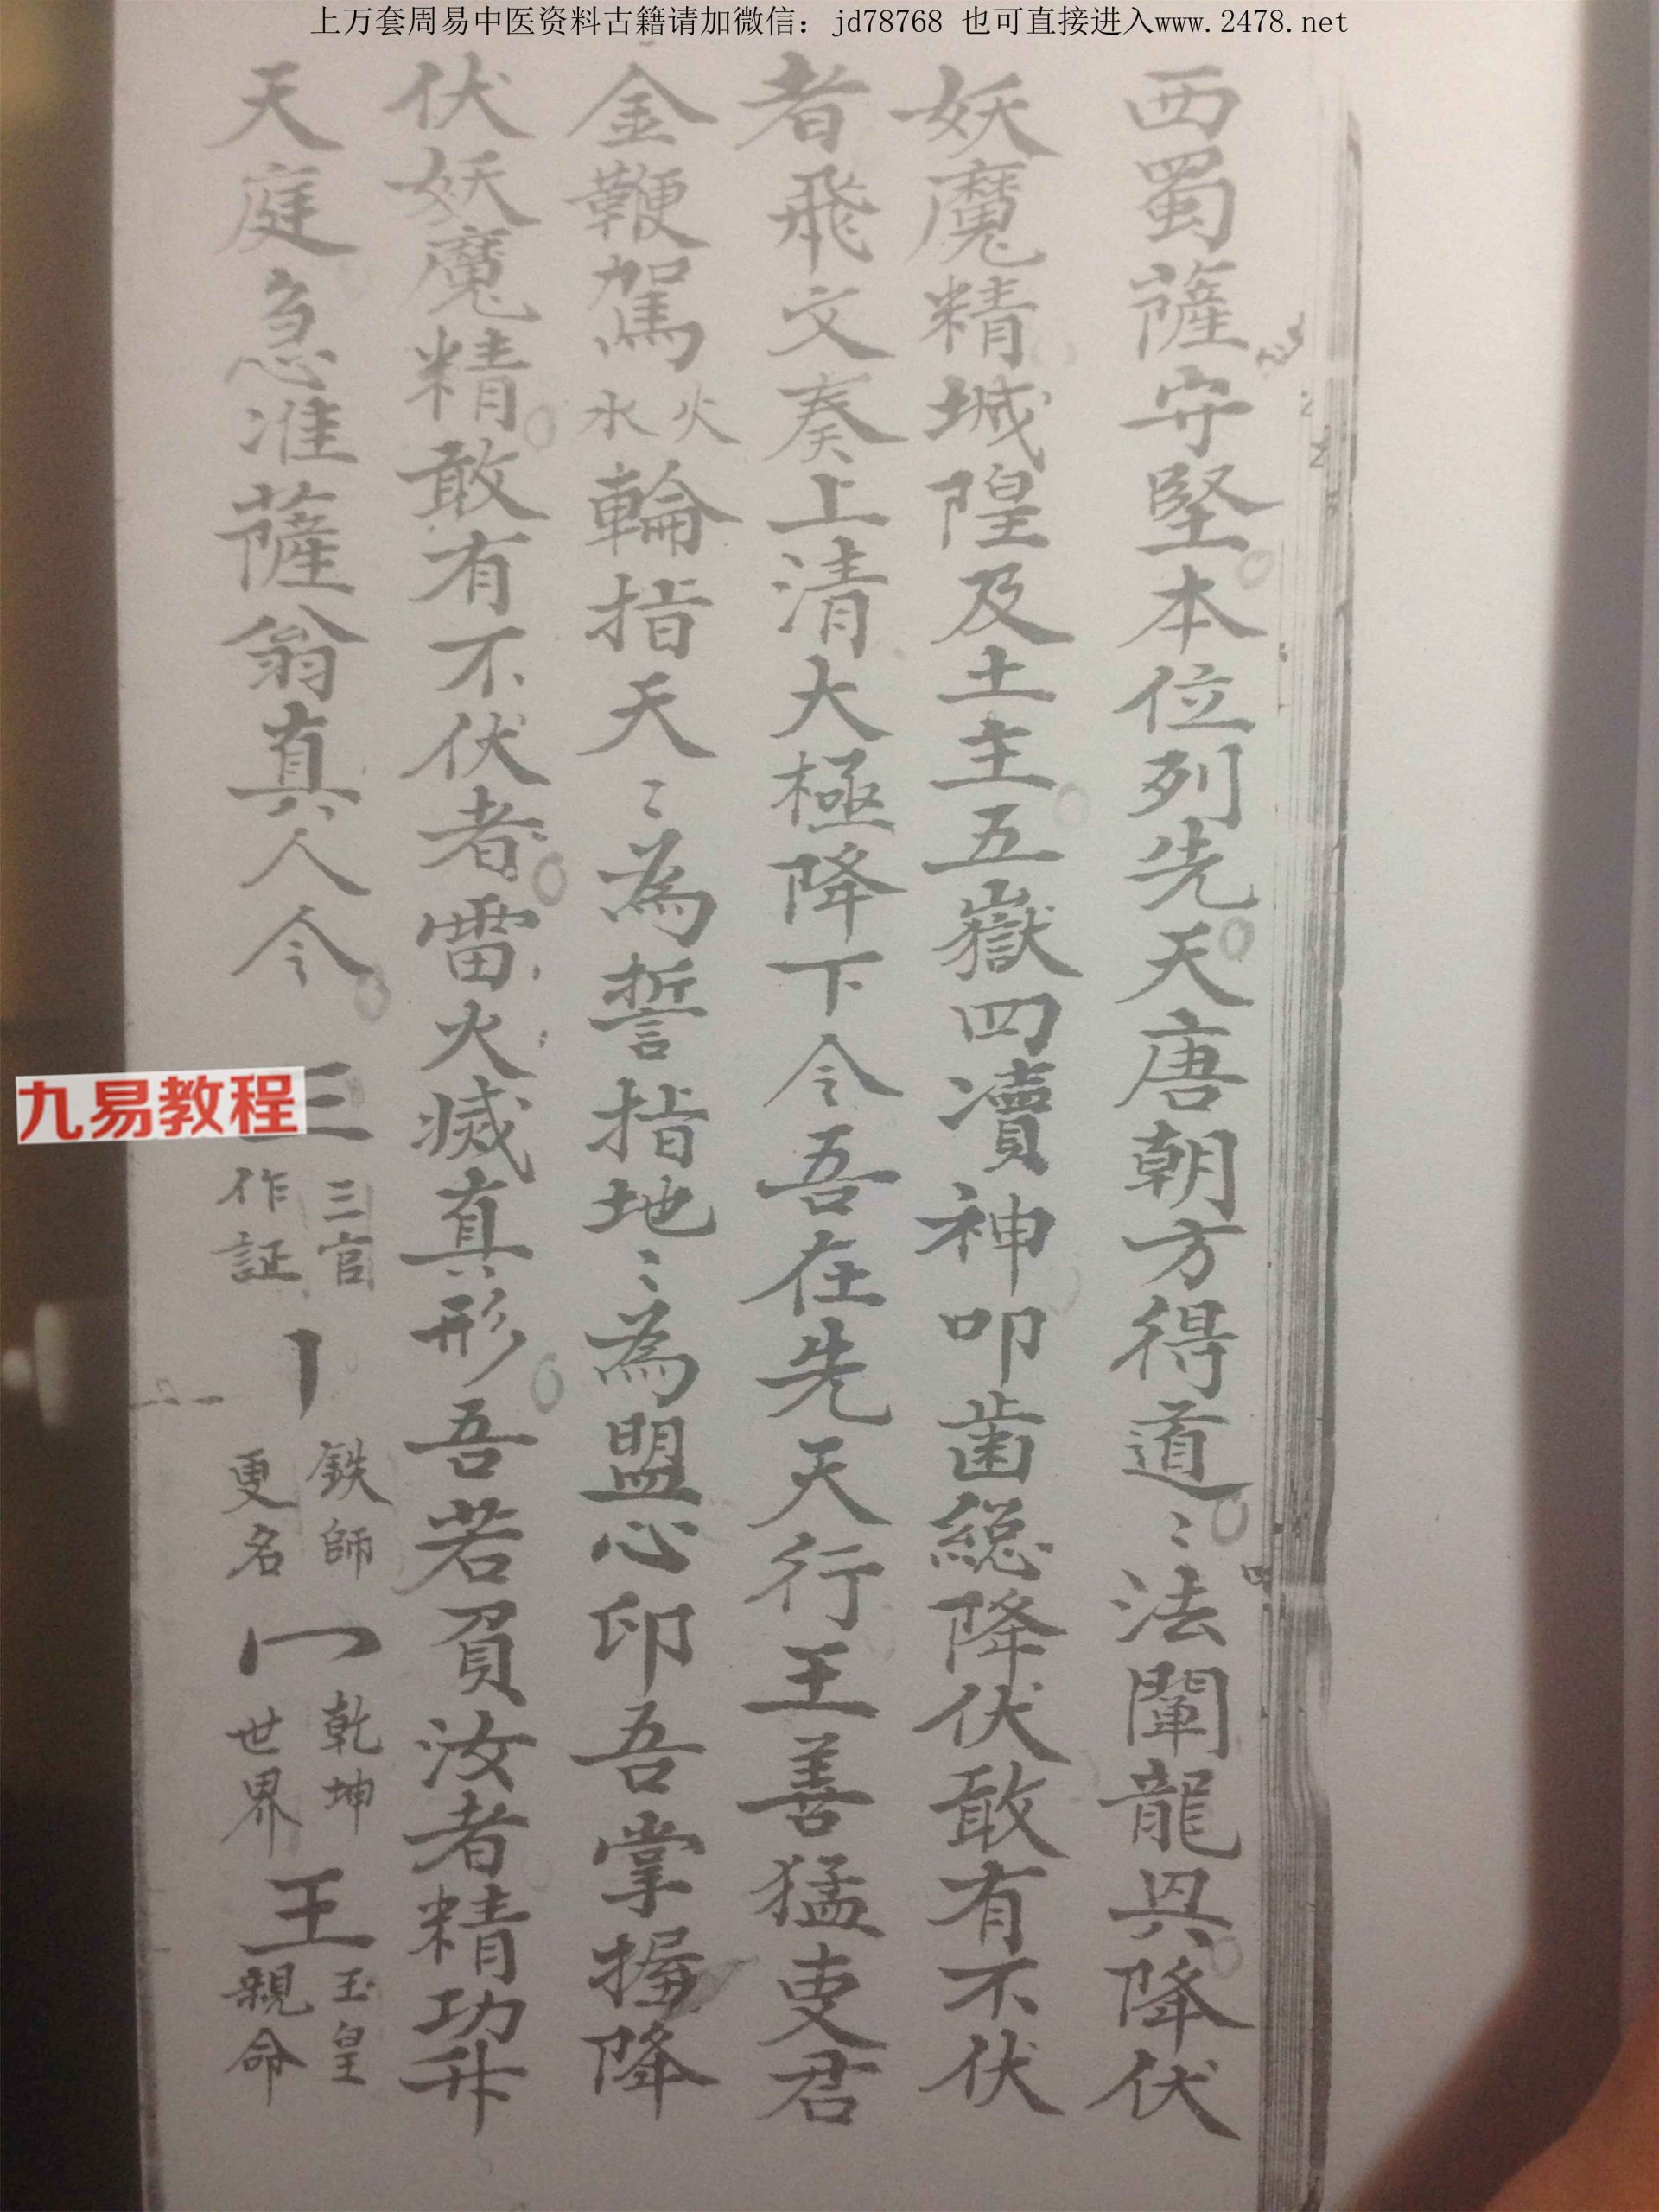 上万套周易中医资料古籍请加微信：jd78768 也可直接进入www.2478.net
西蜀薩守堅本位列先天唐朝方得道〻法闡龍興降伏
妖魔精城隍及土主五嶽四瀆神叩齒総降伏敢有不伏
者飛文奏上清大極降下令吾在先天行王善猛吏君
金鞭駕火水輪指天〻為誓指地〻為盟心印吾掌握降
伏妖魔精敢有不伏者雷火滅真形吾若負汝者精功升
天庭急准薩翁真人令 三官作証 鉄師更名 乾坤世界 王 玉皇親命
九易教程